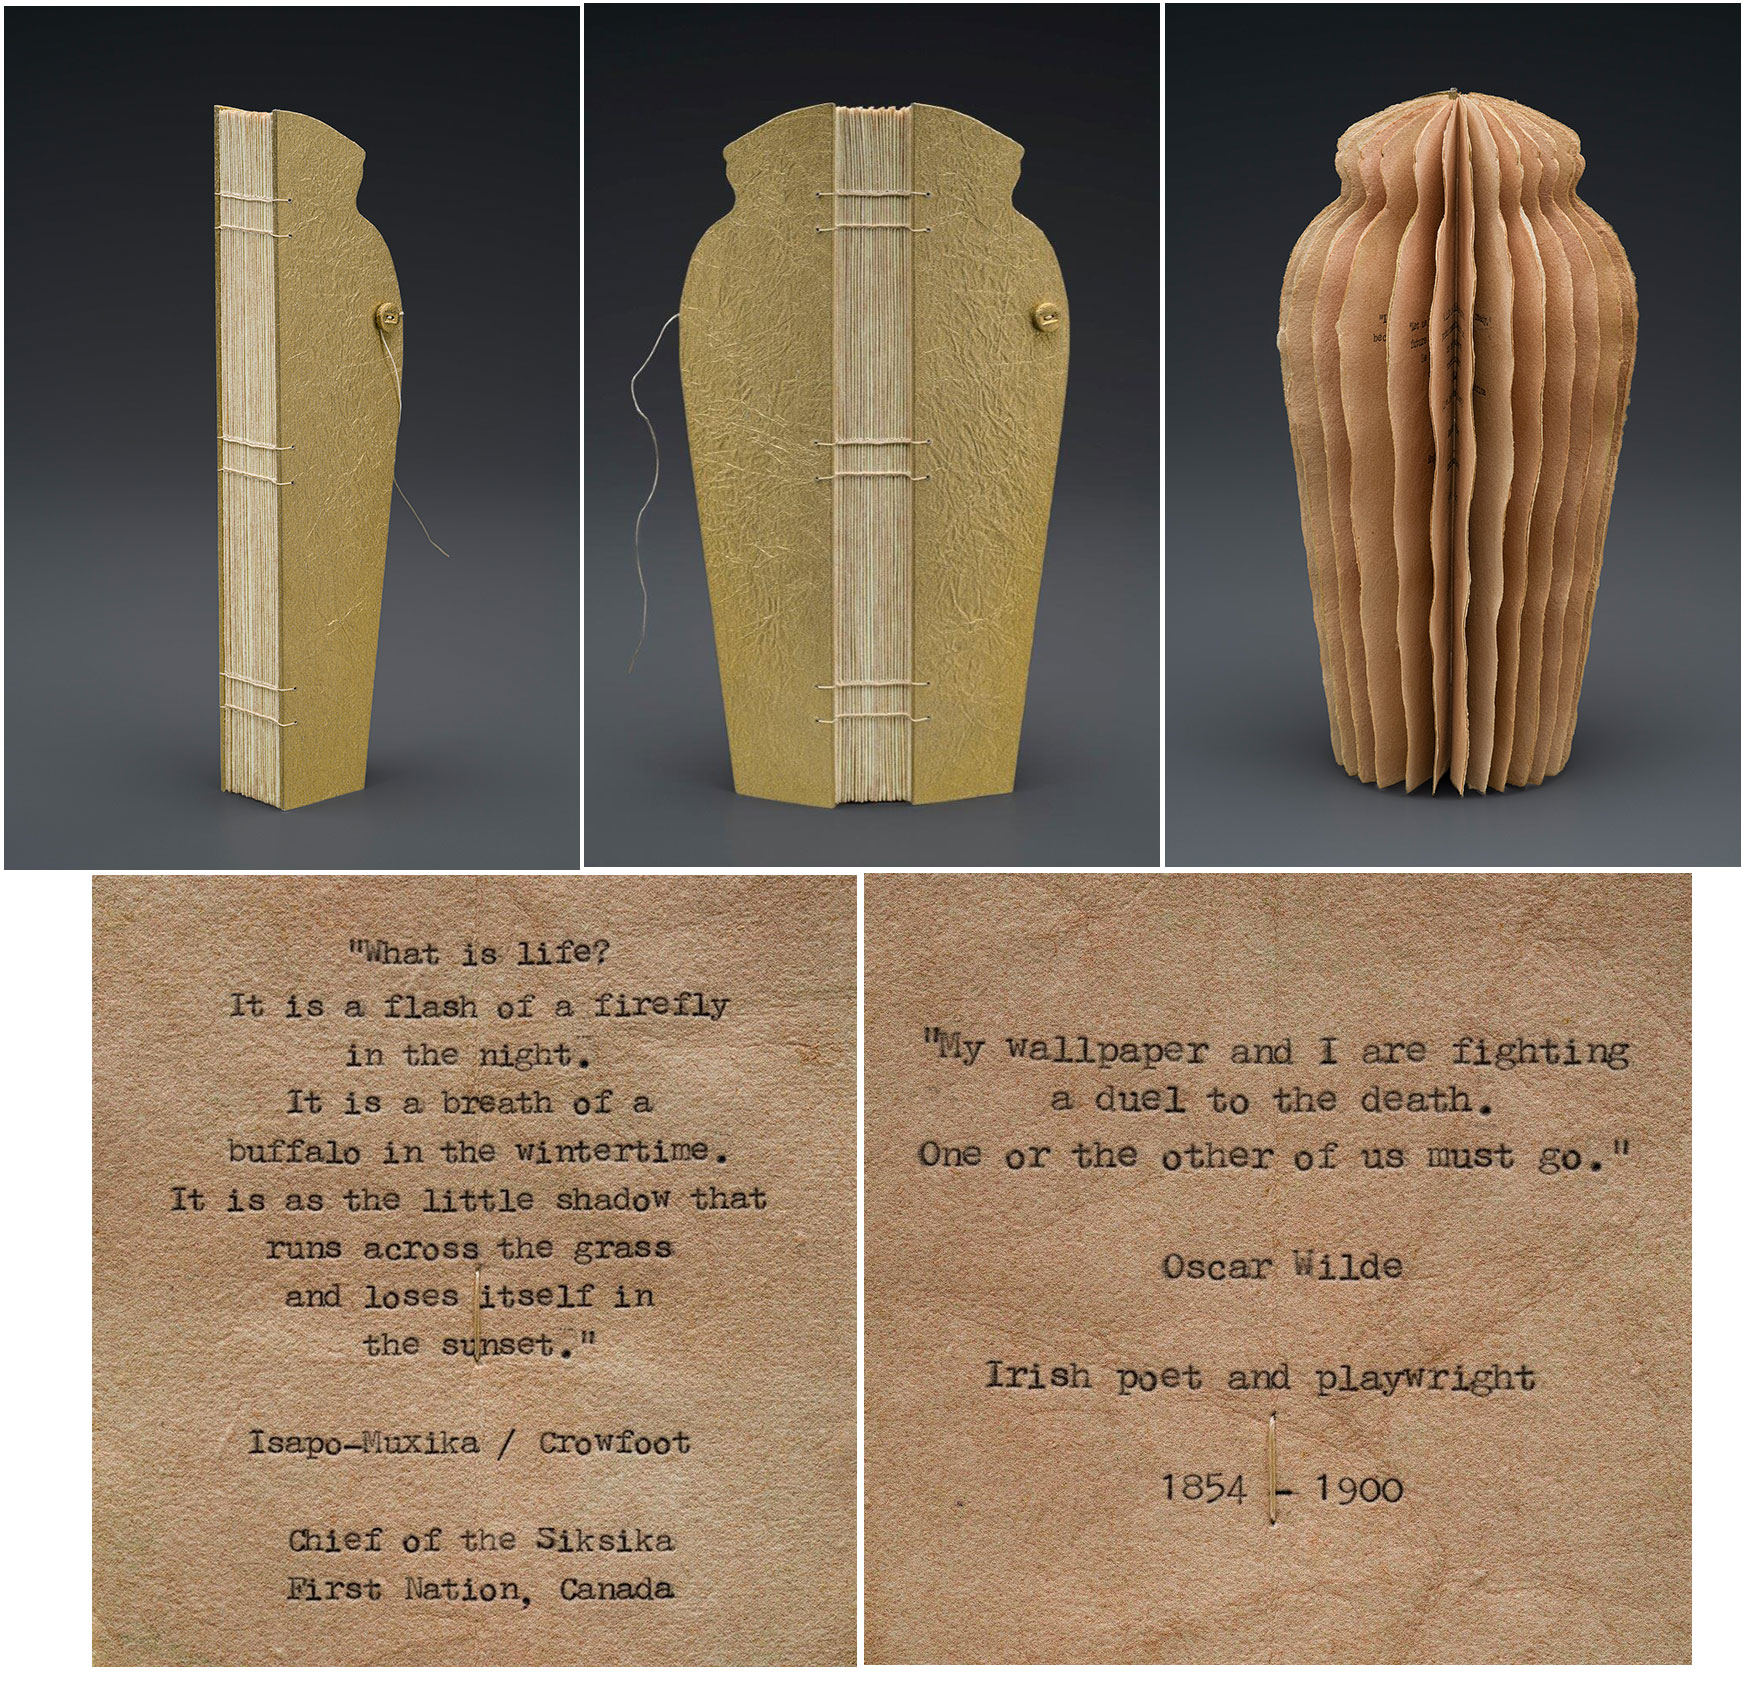 "What is life?
It is a flash of a firefly
in the night.
It is a breath of a
buffalo in the wintertime.
It is as the little shadow that
runs across the grass
and loses itself in
the sunset."
Isapo-Muxika / Crowfoot
Chief of the Siksika
First Nation, Canada
"My wallpaper and I are fighting
a duel to the death.
One or the other of us must go."
Oscar Wilde
Irish poet and playwright
1854 - 1900